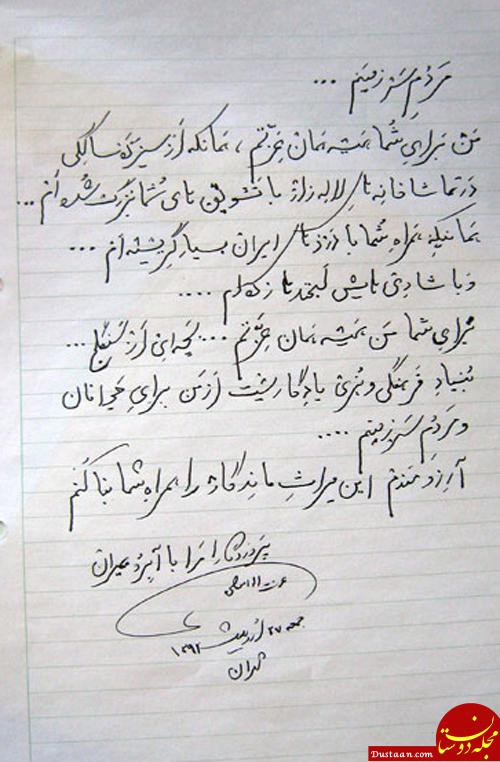 مردمِ سرزمینم ...
من برایِ شما همیشه همان عزّتم ، همانکه از سیزده سالگی
در تماشاخانه‌های لاله‌زار با تشویق‌های شما بزرگ شده‌ام ...
همانیکه همراهِ شما با درد‌های ایران بسیار گریسته‌ام ...
و با شادی‌هایش لبخندها زده‌ام ....
برایِ شما من همیشه همان عزّتم .... بچه‌ای از سنگلج ...
بنیادِ فرهنگی و هنری یادگاریست از من برایِ جوانان
و مردمِ سرزمینم ....
آرزومندم این میراثِ ماندگار را همراهِ شما بنا کنم
پروردگارا مرا با آبرو بمیران
عزت‌الله انتظامی
جمعه ۲۷ اردیبهشت ۱۳۹۲
تهران
مجله دوستان
Dustaan.com